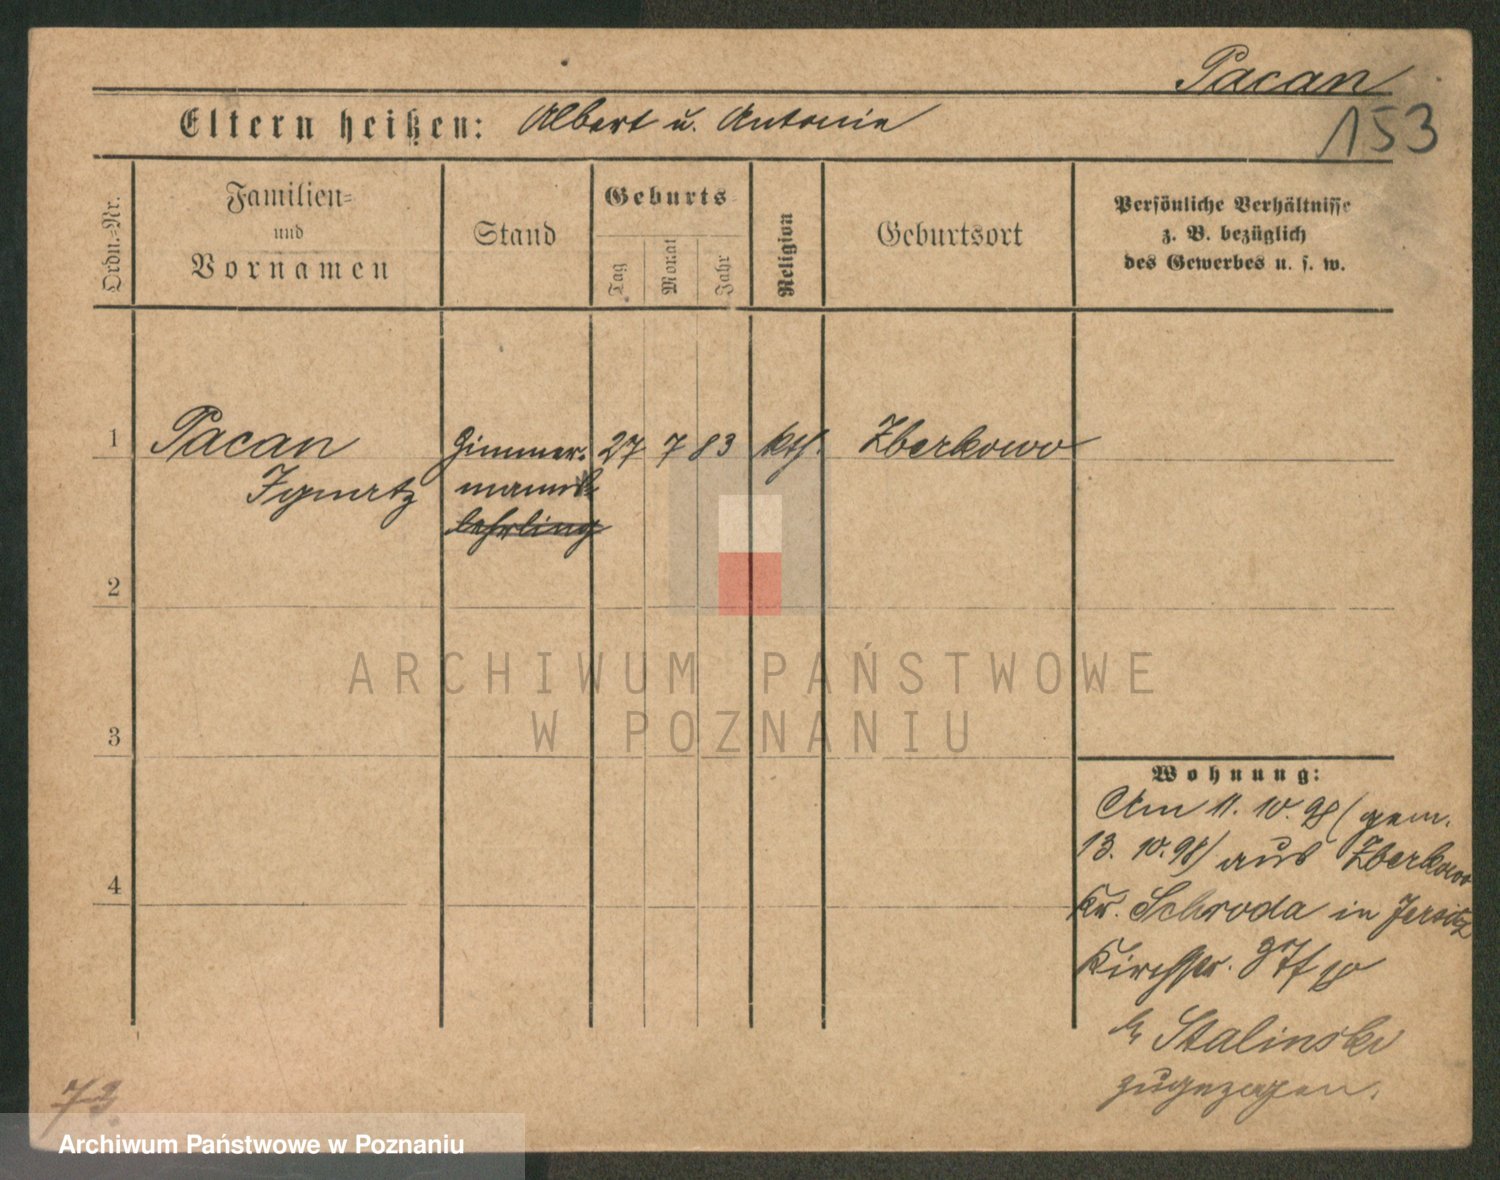 Pacan
153
Eltern heißen: Albert u. Antonie
Ordn.-Nr.
Familien-
und
Vornamen
Stand
Geburts-
Tag
Monat
Jahr
Religion
Geburtsort
Persönliche Verhältnisse
z. B. bezüglich
des Gewerbes u. s. w.
1 Pacan Zimmer- 27 7 83 kth. Zberkowo
Ignatz manns
lehrling
2
3
4
ARCHIWUM PAŃSTWOWE
W POZNANIU
Wohnung:
Am 11. 10. 98 (gem.
13. 10. 98) aus Zberkowo
Kr. Schroda in Jersitz
Kirchstr.
b/ Stalinski
zugezogen.
73.
Archiwum Państwowe w Poznaniu